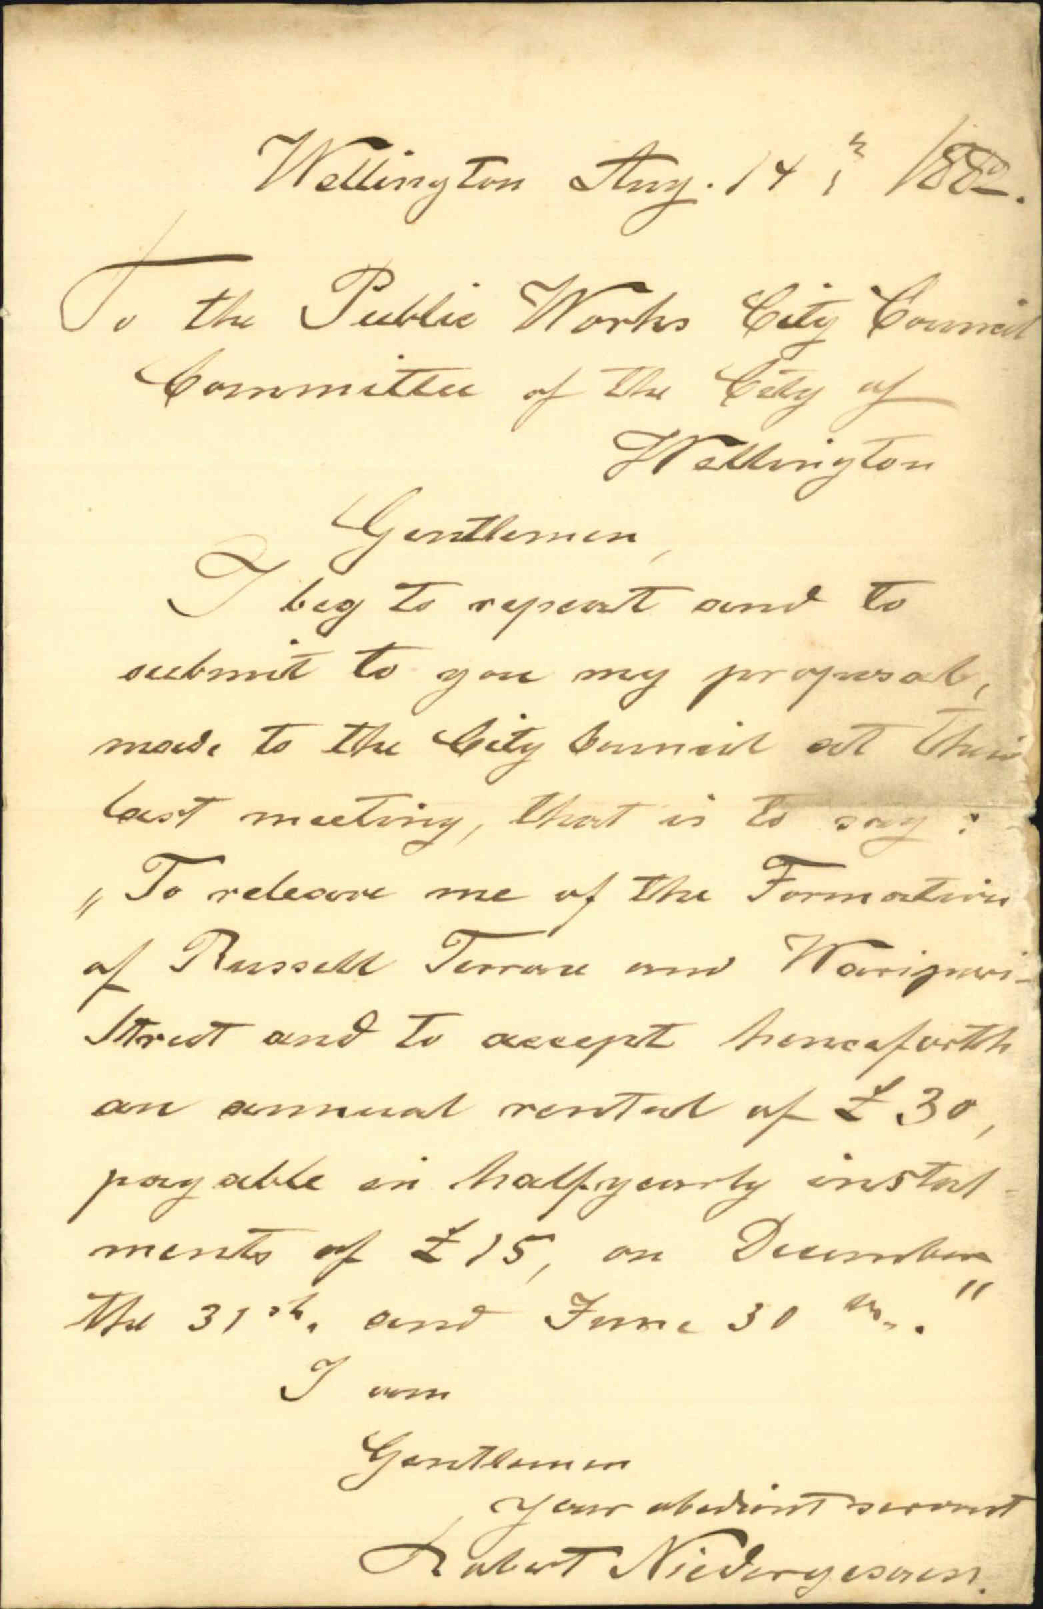 Wellington Aug. 14th 1882.
To the Public Works City Council
Committee of the City of
Wellington
Gentlemen,
I beg to repeat and to
submit to you my proposal,
made to the City Council at their
last meeting, that is to say:
„To release me of the Formation
of Russell Terrace and Waripori-
Street and to accept henceforth
an annual rental of £30,
payable in halfyearly instal-
ments of £15, on December
the 31st. and June 30th."
I am
Gentlemen
your obedient servant
Robert Niedergesaess.